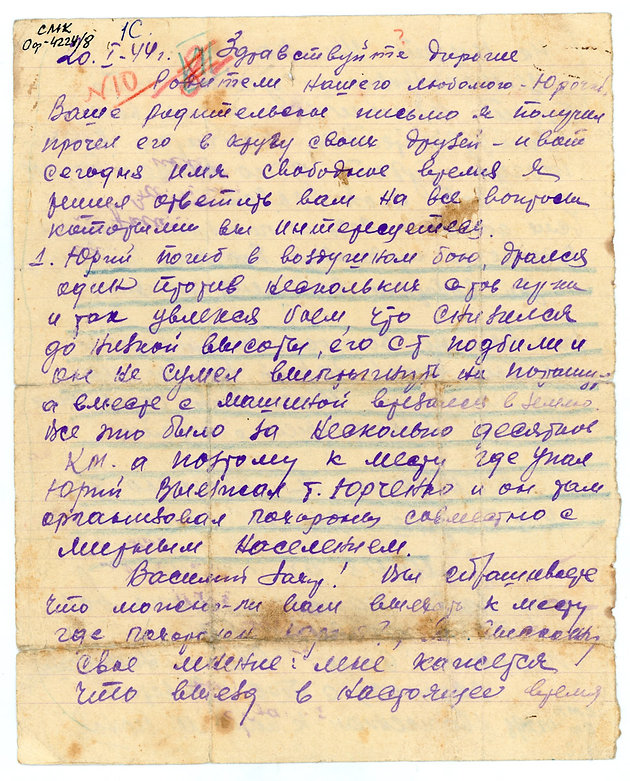 СМК 1С
Оф-4224/8
20.I-44г. Здравствуйте дорогие
N10 Родители нашего любимого-Юрочки,
Ваше родительское письмо я получил
прочел его в кругу своих друзей - и вот
сегодня имя свободное время я
решил ответить вам на все вопросы
которыми вы интересуетесь.
1. Юрий погиб в воздушном бою дрался
один против нескольких
и так увлекся боем, что снизился
до низкой высоты, его с-т подбили и
он не сумел выпрыгнуть на
а вместе с машиной врезался в землю.
Все это было за несколько десятков
км. а поэтому к месту где упал
Юрий выезжал т. Юрченко и он там
организовал похороны совместно с
мирным населением.
Василий Зах.! Вы спрашиваете
что можно-ли вам выехать к месту
где похоронен
свое мнение: мне кажется
что выезд в настоящее время